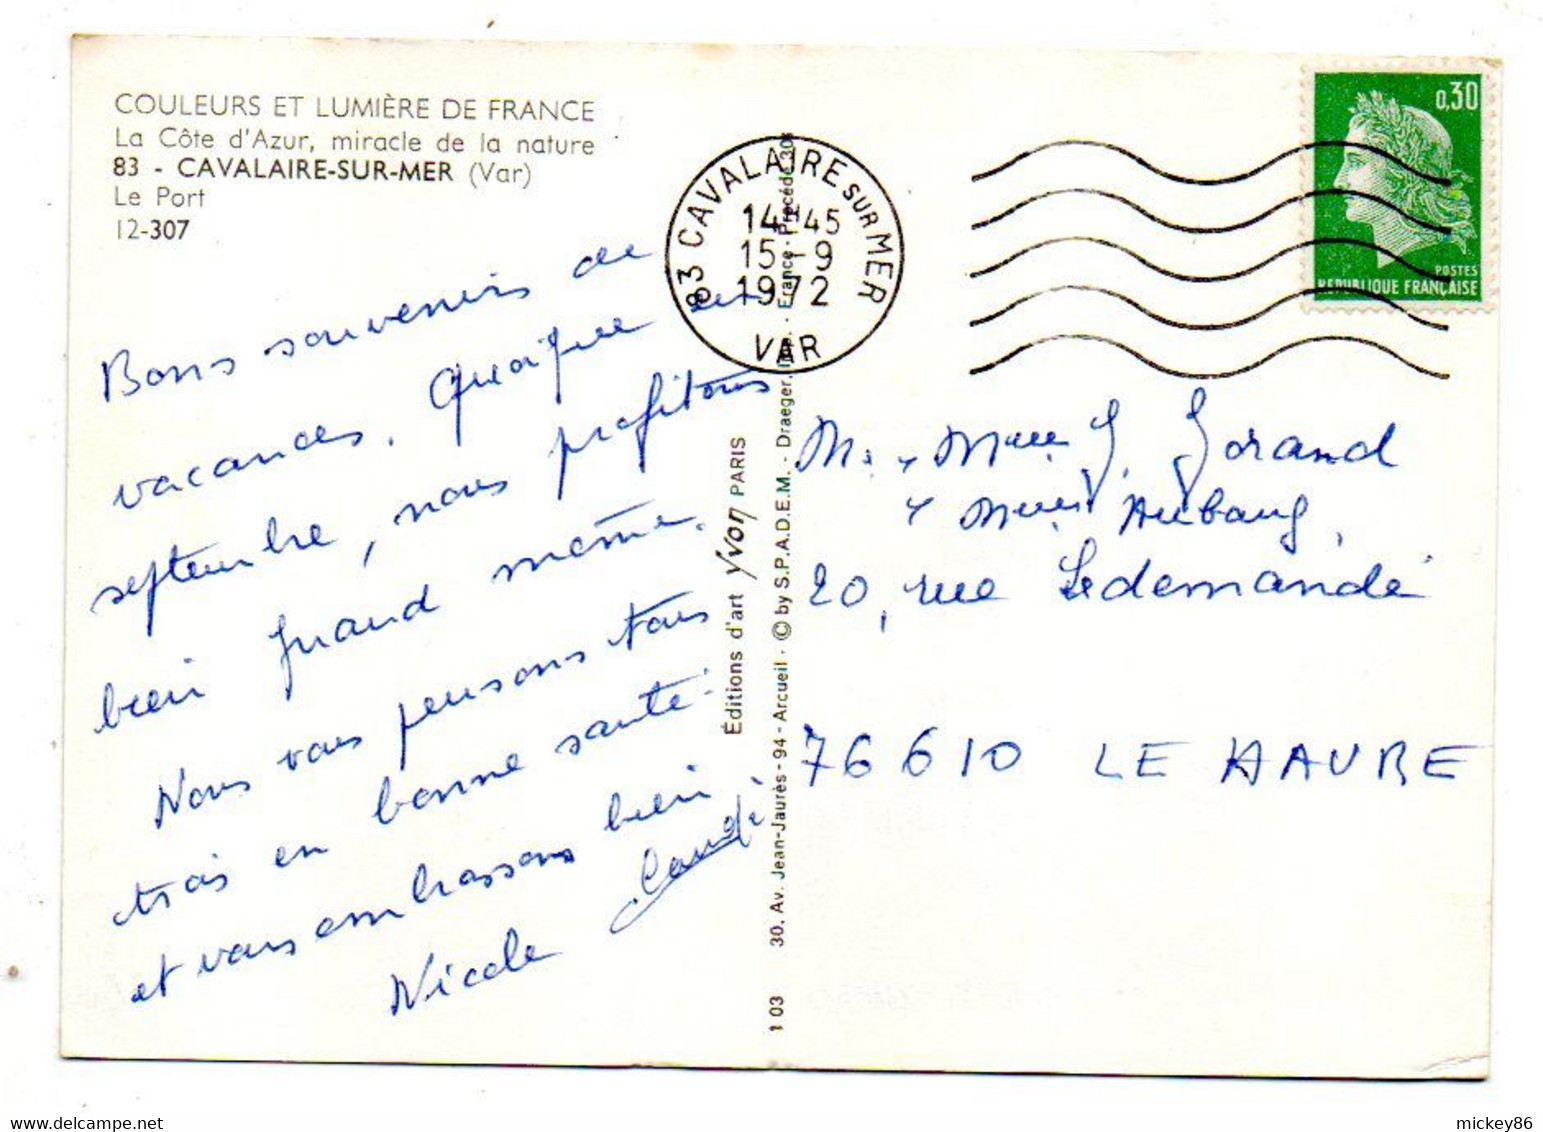 COULEURS ET LUMIÈRE DE FRANCE
La Côte d'Azur, miracle de la nature
83 - CAVALAIRE-SUR-MER (Var)
Le Port
12-307
Bons souvenirs de
vacances. Quoique en
septembre, nous profitons
bien quand même.
Nous vous pensons tous
trois en bonne santé
et vous embrassons bien
Nicole Claude
83 CAVALAIRE SUR MER
14H45
15-9
1972
VAR
0,30
POSTES
REPUBLIQUE FRANÇAISE
Éditions d'art Yvon PARIS
103 30, Av. Jean-Jaurès - 94 - Arcueil - © by S.P.A.D.E.M. - Draeger, Imp. - France - Procédé 301
M. & Mme J. Gorand
& Mme Aubourg,
20, rue Ledemandé
76610 LE HAVRE
mickey86